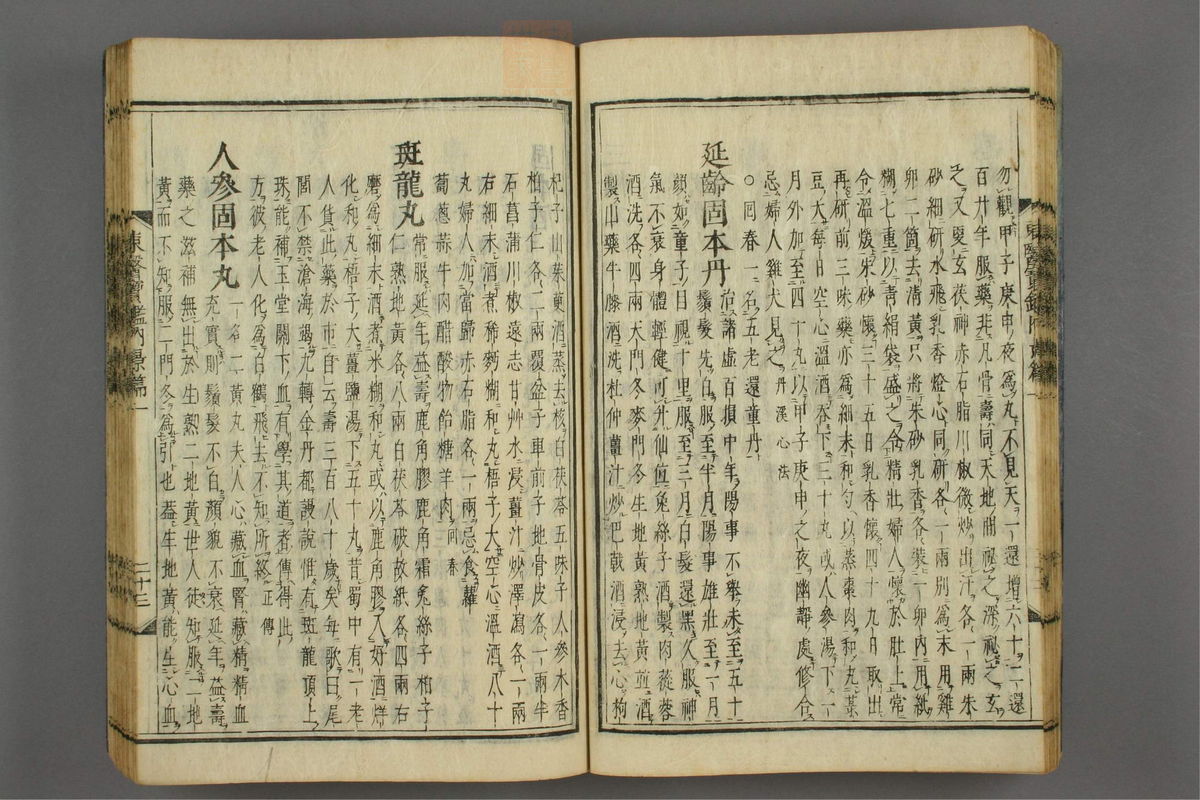 勿觀甲子庚申夜爲丸不見天一還增六十二還
百廿年服藥非凡骨壽同天地而祕之深祕之玄
之又更玄茯神赤石脂川椒微炒出汗各一兩朱
砂細研水飛乳香燈心同研各一兩別爲末用雞
卵二箇去淸黃只將朱砂乳香各裝一卵內用紙
糊七重以靑絹袋盛之令精壯婦人懷於肚上常
令溫煖朱砂懷三十五日乳香懷四十九日取出
再研前三味藥亦爲細末和勻以蒸棗肉和丸菉
豆大每日空心溫酒呑下三十丸或人參湯下一
月外加至四十丸以甲子庚申之夜幽靜處修合
忌婦人雞犬見之丹溪心法
○回春一名五老還童丹
延齡固本丹
治諸虛百損中年陽事不擧未至五十
鬚髮先白服至半月陽事雄壯至一月
顔如童子目視十里服至三月白髮還黑久服神
氣不衰身體輕健可升仙位兔絲子酒製肉蓯蓉
酒洗各四兩天門冬麥門冬生地黃熟地黃並酒
製山藥牛膝酒洗杜仲薑汁炒巴戟酒浸去心枸
杞子山茱萸酒蒸去核白茯苓五味子人參木香
柏子仁各二兩覆盆子車前子地骨皮各一兩半
石菖蒲川椒遠志甘艸水浸薑汁炒澤瀉各一兩
右細末酒煮稀麪糊和丸梧子大空心溫酒八十
丸婦人加當歸赤石脂各一兩忌食蘿
蔔葱蒜牛肉醋酸物飴糖羊肉回春
斑龍丸
常服延年益壽鹿角膠鹿角霜兔絲子柏子
仁熟地黃各八兩白茯苓破故紙各四兩右
磨爲細末酒煮米糊和丸或以鹿角膠入好酒烊
化和丸梧子大薑鹽湯下五十丸昔蜀中有一老
人貨此藥於市自云壽三百八十歲矣每歌曰尾
閭不禁滄海竭九轉金丹都謾說惟有斑龍頂上
珠能補玉堂關下血有學其道者傳得此
方彼老人化爲白鶴飛去不知所終正傳
人參固本丸
一名二黃丸夫人心藏血腎藏精精血
充實則鬚髮不白顔貌不衰延年益壽
藥之滋補無出於生熟二地黃世人徒知服二地
黃而不知服二門冬爲引也蓋生地黃能生心血
東醫寶鑑內景篇一
二十三